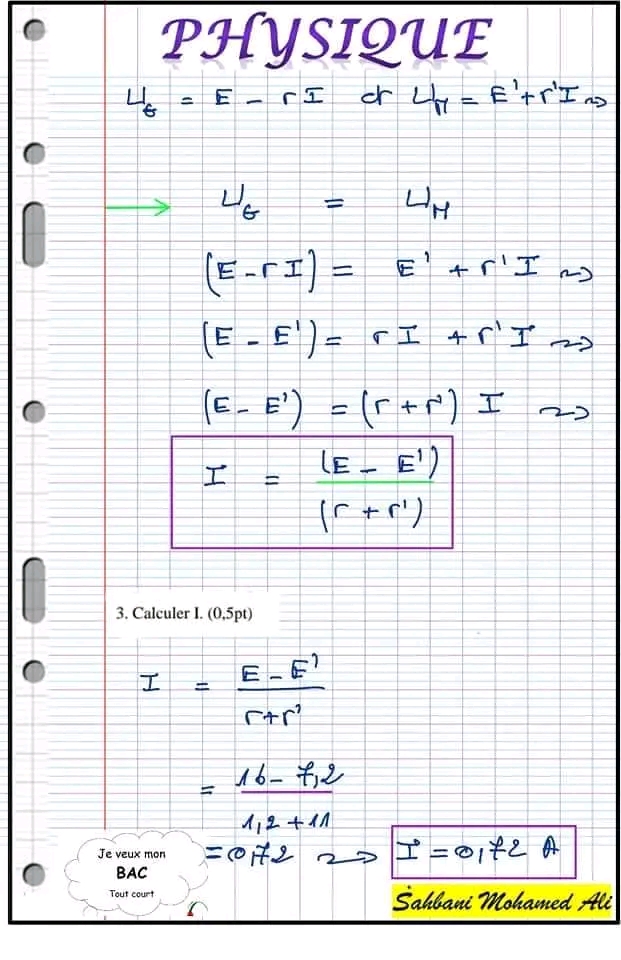 PHYSIQUE
U_G = E - rI et U_M = E' + r'I ⇒
→ U_G = U_M
(E - rI) = E' + r'I ⇒
(E - E') = rI + r'I ⇒
(E - E') = (r + r') I ⇒
I = (E - E') / (r + r')
3. Calculer I. (0,5pt)
I = E - E' / r + r'
= 16 - 7,2 / 1,2 + 11
= 0,72 ⇒ I = 0,72 A
Je veux mon
BAC
Tout court
Sahbani Mohamed Ali